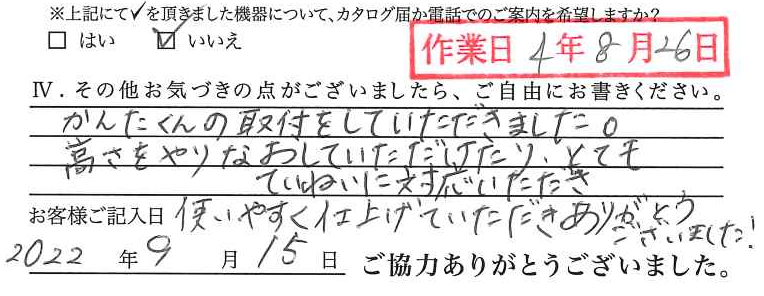 ※上記にて✓を頂きました機器について、カタログ届か電話でのご案内を希望しますか?
□ はい ☑ いいえ
作業日 4年8月26日
Ⅳ.その他お気づきの点がございましたら、ご自由にお書きください。
かんたくんの取付をしていただきました。
高さをやりなおしていただけたり、とても
ていねいに対応いただき
お客様ご記入日 使いやすく仕上げていただきありがとう
ございました!
2022 年 9 月 15 日 ご協力ありがとうございました。